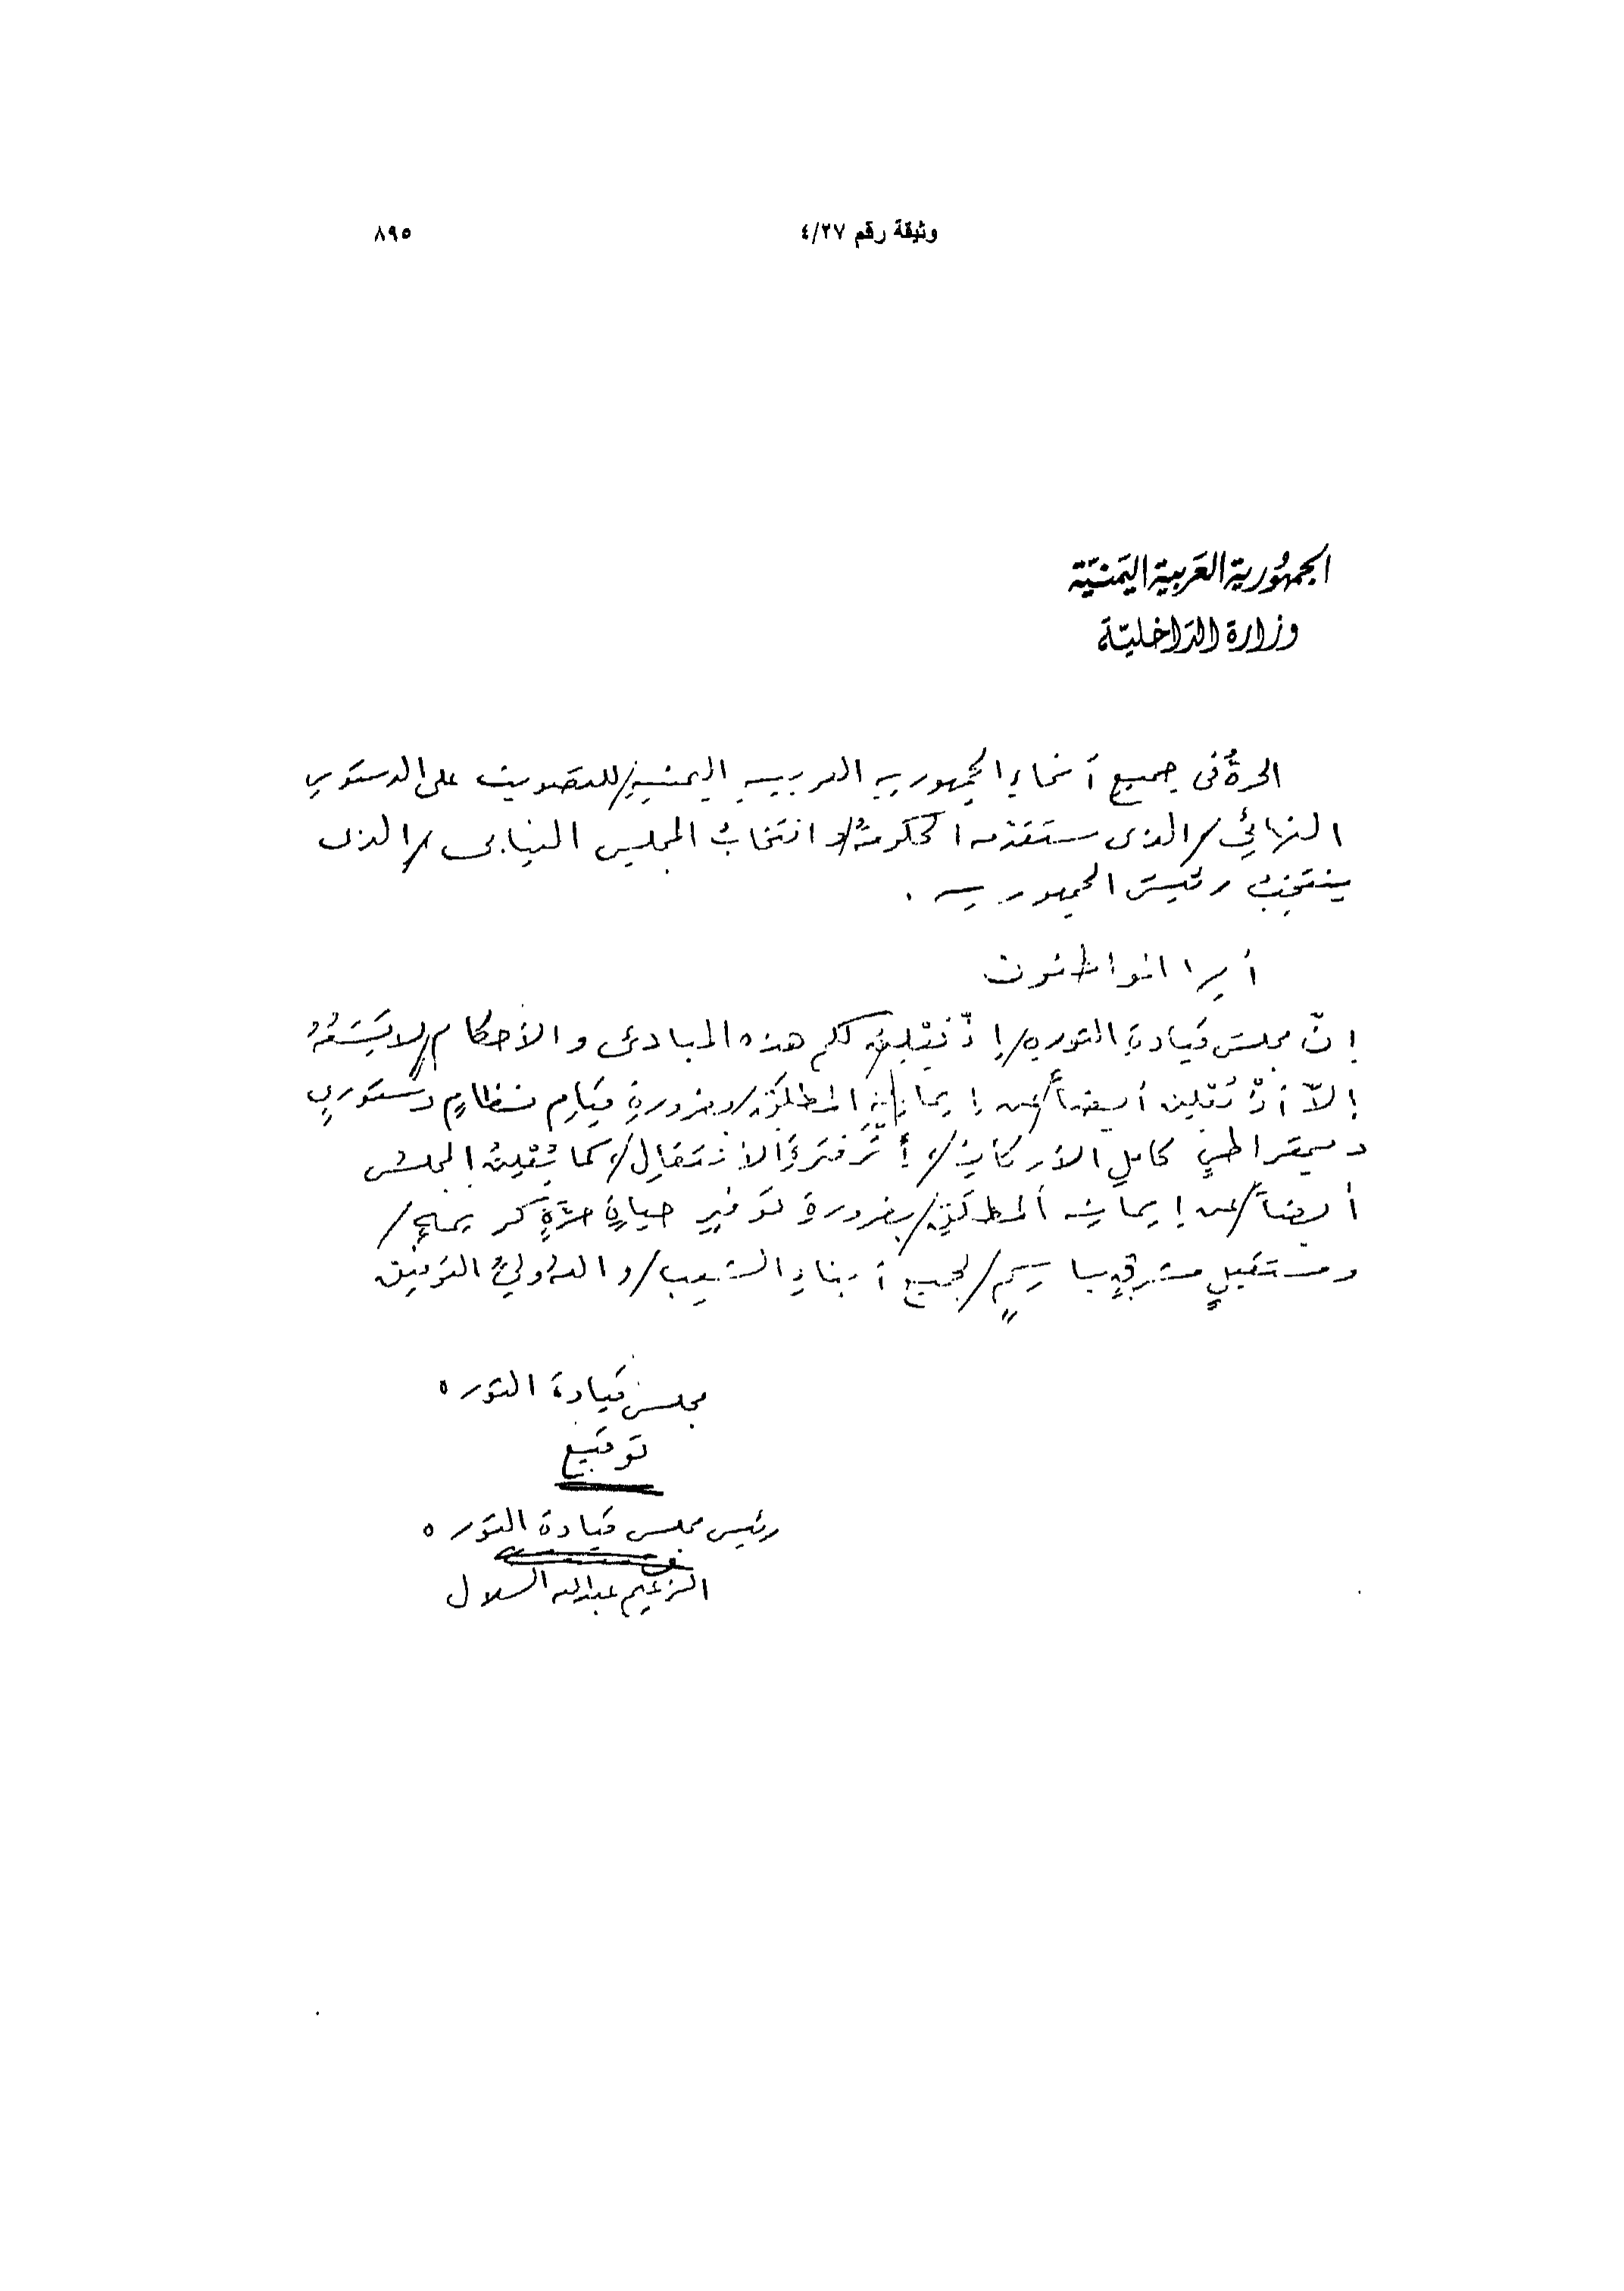 وثيقة رقم ٤/٢٧ ٨٩٥
الجمهورية العربية اليمنية
وزارة الداخلية
الحرة في جميع أنحاء الجمهوريه العربيه اليمنية/للتصويت على الدستور
النهائي/الذى ستقدمه الحكومة/و انتخاب المجلس النيابى/الذى
ينتخب رئيس الجمهوريه .
أيها المواطنون
إنّ مجلس قيادة الثوره/إذ يُعْلِن لكم هذه المبادئ و الأحكام/لا يَسَعُهُ
إلاّ أنْ يُعْلِن أيضاً/عن إيمانه المطلق/بضرورة قيام نظامٍ دستوري
ديمقراطي كامل الأركان/، إثر فترة الانتقال/، كما يُعْلِنُ المجلسُ
أيضاً/عن إيمانه المطلق/بضرورة توفير حياةٍ حرّةٍ كريمةٍ/
ومستقبلٍ مشرقٍ باسمٍ/لجميع أبناء الشعب/و الله وليُّ التوفيق
مجلس قيادة الثوره
توقيع
رئيس مجلس قيادة الثوره
الزعيم عبدالله السلال